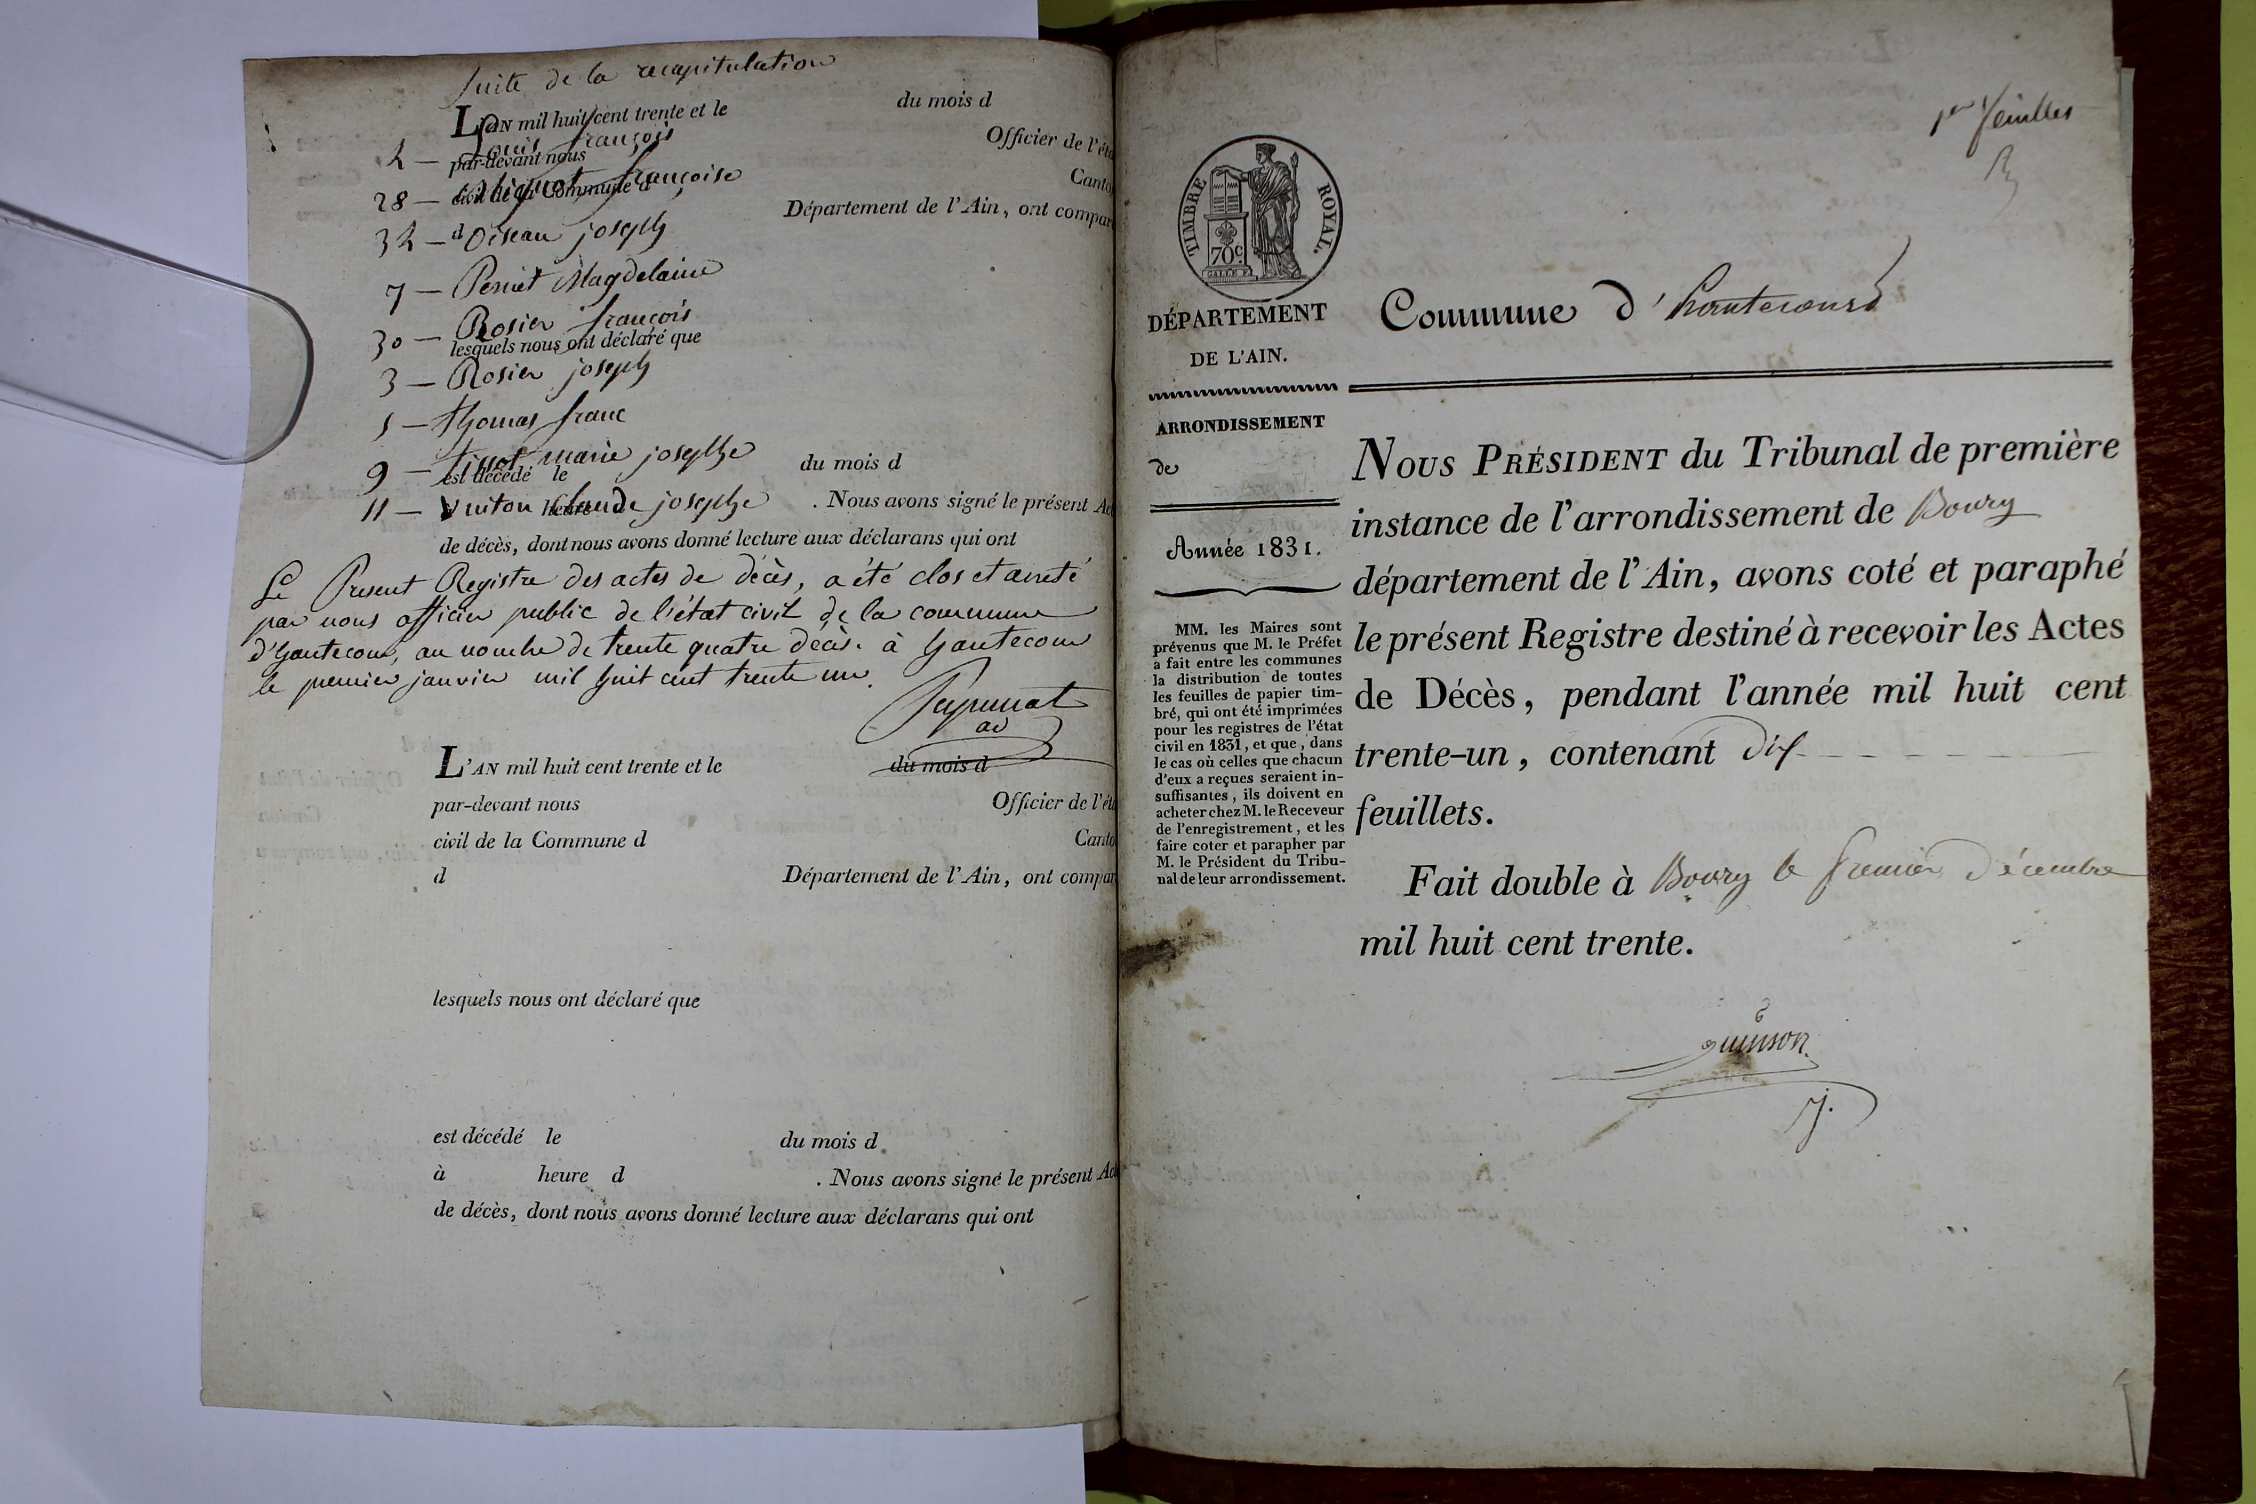 Suite de la recapitulation
L'AN mil huit cent trente et le du mois d
2 — Louis françois
par-devant nous Officier de l'éta
28 — françoise
civil de la Commune d Canto
d Département de l'Ain, ont compar
32 — Oiseau joseph
7 — Perriet Magdelaine
30 — Rosier françois
lesquels nous ont déclaré que
3 — Rosier joseph
5 — thomas franc
9 — tissot marie josephe
est décédé le du mois d
11 — Vuiton Claude josephe
heure . Nous avons signé le présent Ac
de décès, dont nous avons donné lecture aux déclarans qui ont
Le Present Registre des actes de décès, a été clos et arreté
par nous officier public de l'état civil de la commune
d'hautecour, au nombre de trente quatre décès. à hautecour
le premier janvier mil huit cent trente un.
L'AN mil huit cent trente et le du mois d
par-devant nous Officier de l'éta
civil de la Commune d Canto
d Département de l'Ain, ont compar
lesquels nous ont déclaré que
est décédé le du mois d
à heure d . Nous avons signé le présent Act
de décès, dont nous avons donné lecture aux déclarans qui ont
1er feuillet
TIMBRE ROYAL.
70c.
DÉPARTEMENT
DE L'AIN.
ARRONDISSEMENT
de
Année 1831.
MM. les Maires sont
prévenus que M. le Préfet
a fait entre les communes
la distribution de toutes
les feuilles de papier tim-
bré, qui ont été imprimées
pour les registres de l'état
civil en 1831, et que, dans
le cas où celles que chacun
d'eux a reçues seraient in-
suffisantes, ils doivent en
acheter chez M. le Receveur
de l'enregistrement, et les
faire coter et parapher par
M. le Président du Tribu-
nal de leur arrondissement.
Commune d'hautecourt
NOUS PRÉSIDENT du Tribunal de première
instance de l'arrondissement de Bourg
département de l'Ain, avons coté et paraphé
le présent Registre destiné à recevoir les Actes
de Décès, pendant l'année mil huit cent
trente-un, contenant dix
feuillets.
Fait double à Bourg le premier Décembre
mil huit cent trente.
quinson